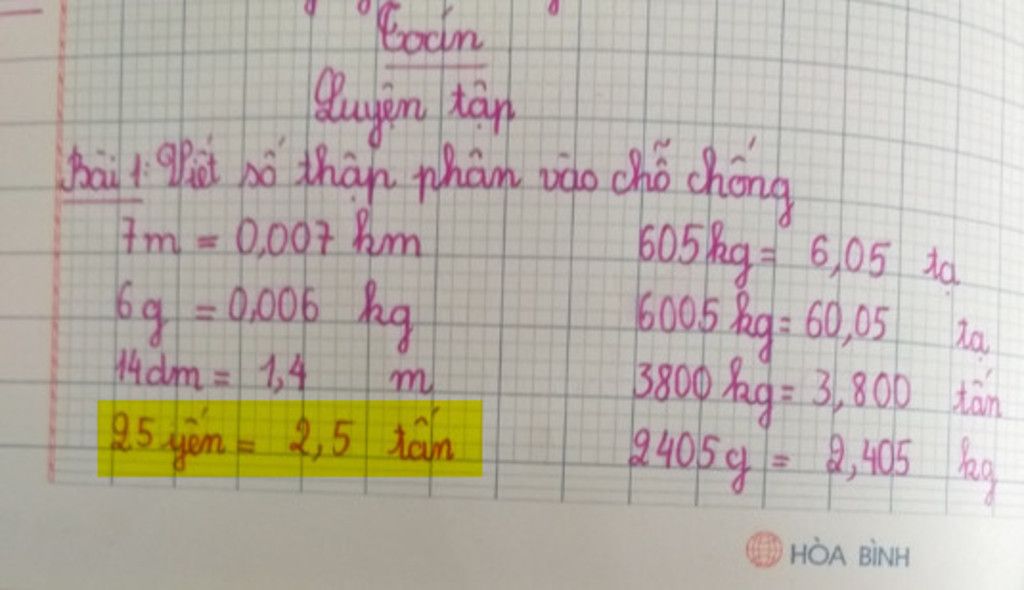 Toán
Luyện tập
Bài 1: Viết số thập phân vào chỗ chống
7m = 0,007 km 605kg = 6,05 tạ
6g = 0,006 kg 6005 kg = 60,05 tạ
14dm = 1,4 m 3800 kg = 3,800 tấn
25 yến = 2,5 tấn 2405g = 2,405 kg
HÒA BÌNH